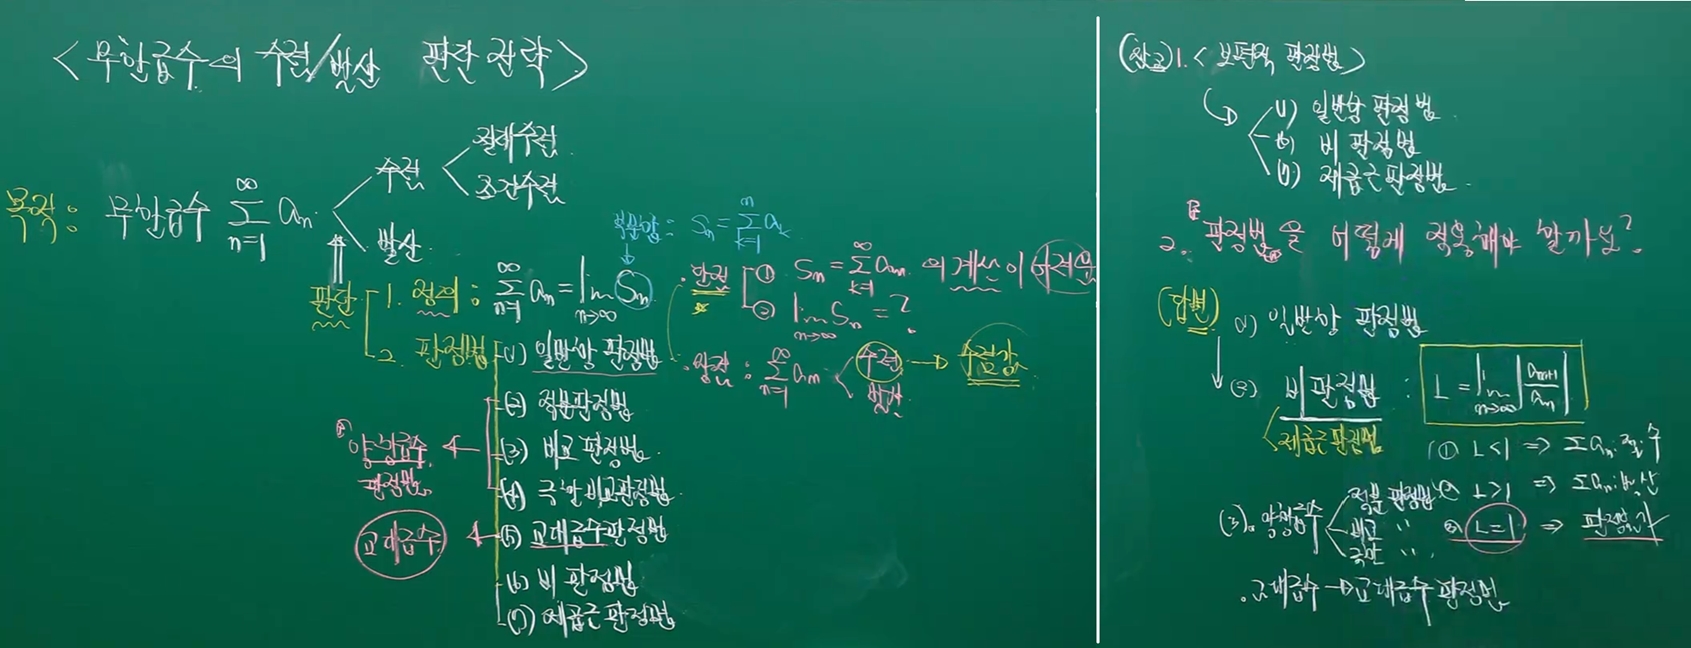 <무한급수의 수렴/발산 판단 전략>
목적: 무한급수 ∑_{n=1}^{∞} a_n
수렴
절대수렴
조건수렴
발산
판단
1. 정의: ∑_{n=1}^{∞} a_n = lim_{n→∞} S_n
부분합: S_n = ∑_{k=1}^{n} a_k
2. 판정법
(1) 일반항 판정법
(2) 적분판정법
(3) 비교 판정법
(4) 극한비교판정법
(5) 교대급수판정법
(6) 비 판정법
(7) 제곱근판정법
양항급수
판정법
교대급수
단점
① S_n = ∑_{k=1}^{∞} a_n 의 계산이 어려움
② lim_{n→∞} S_n = ?
장점: ∑_{n=1}^{∞} a_n
수렴 → 수렴값
발산
(참고) 1. <보편적 판정법>
(1) 일반항 판정법
(6) 비 판정법
(7) 제곱근판정법
2. 판정법을 어떻게 적용해야 할까요?
(답변) (1) 일반항 판정법
(2) 비 판정법 : L = lim_{n→∞} |a_{n+1}/a_n|
제곱근판정법
① L<1 ⇒ ∑a_n: 절.수
② L>1 ⇒ ∑a_n: 발산
③ L=1 ⇒ 판정불가
(3). 양항급수
적분 판정법
비교 〃
극한 〃
. 교대급수 → 교대급수 판정법